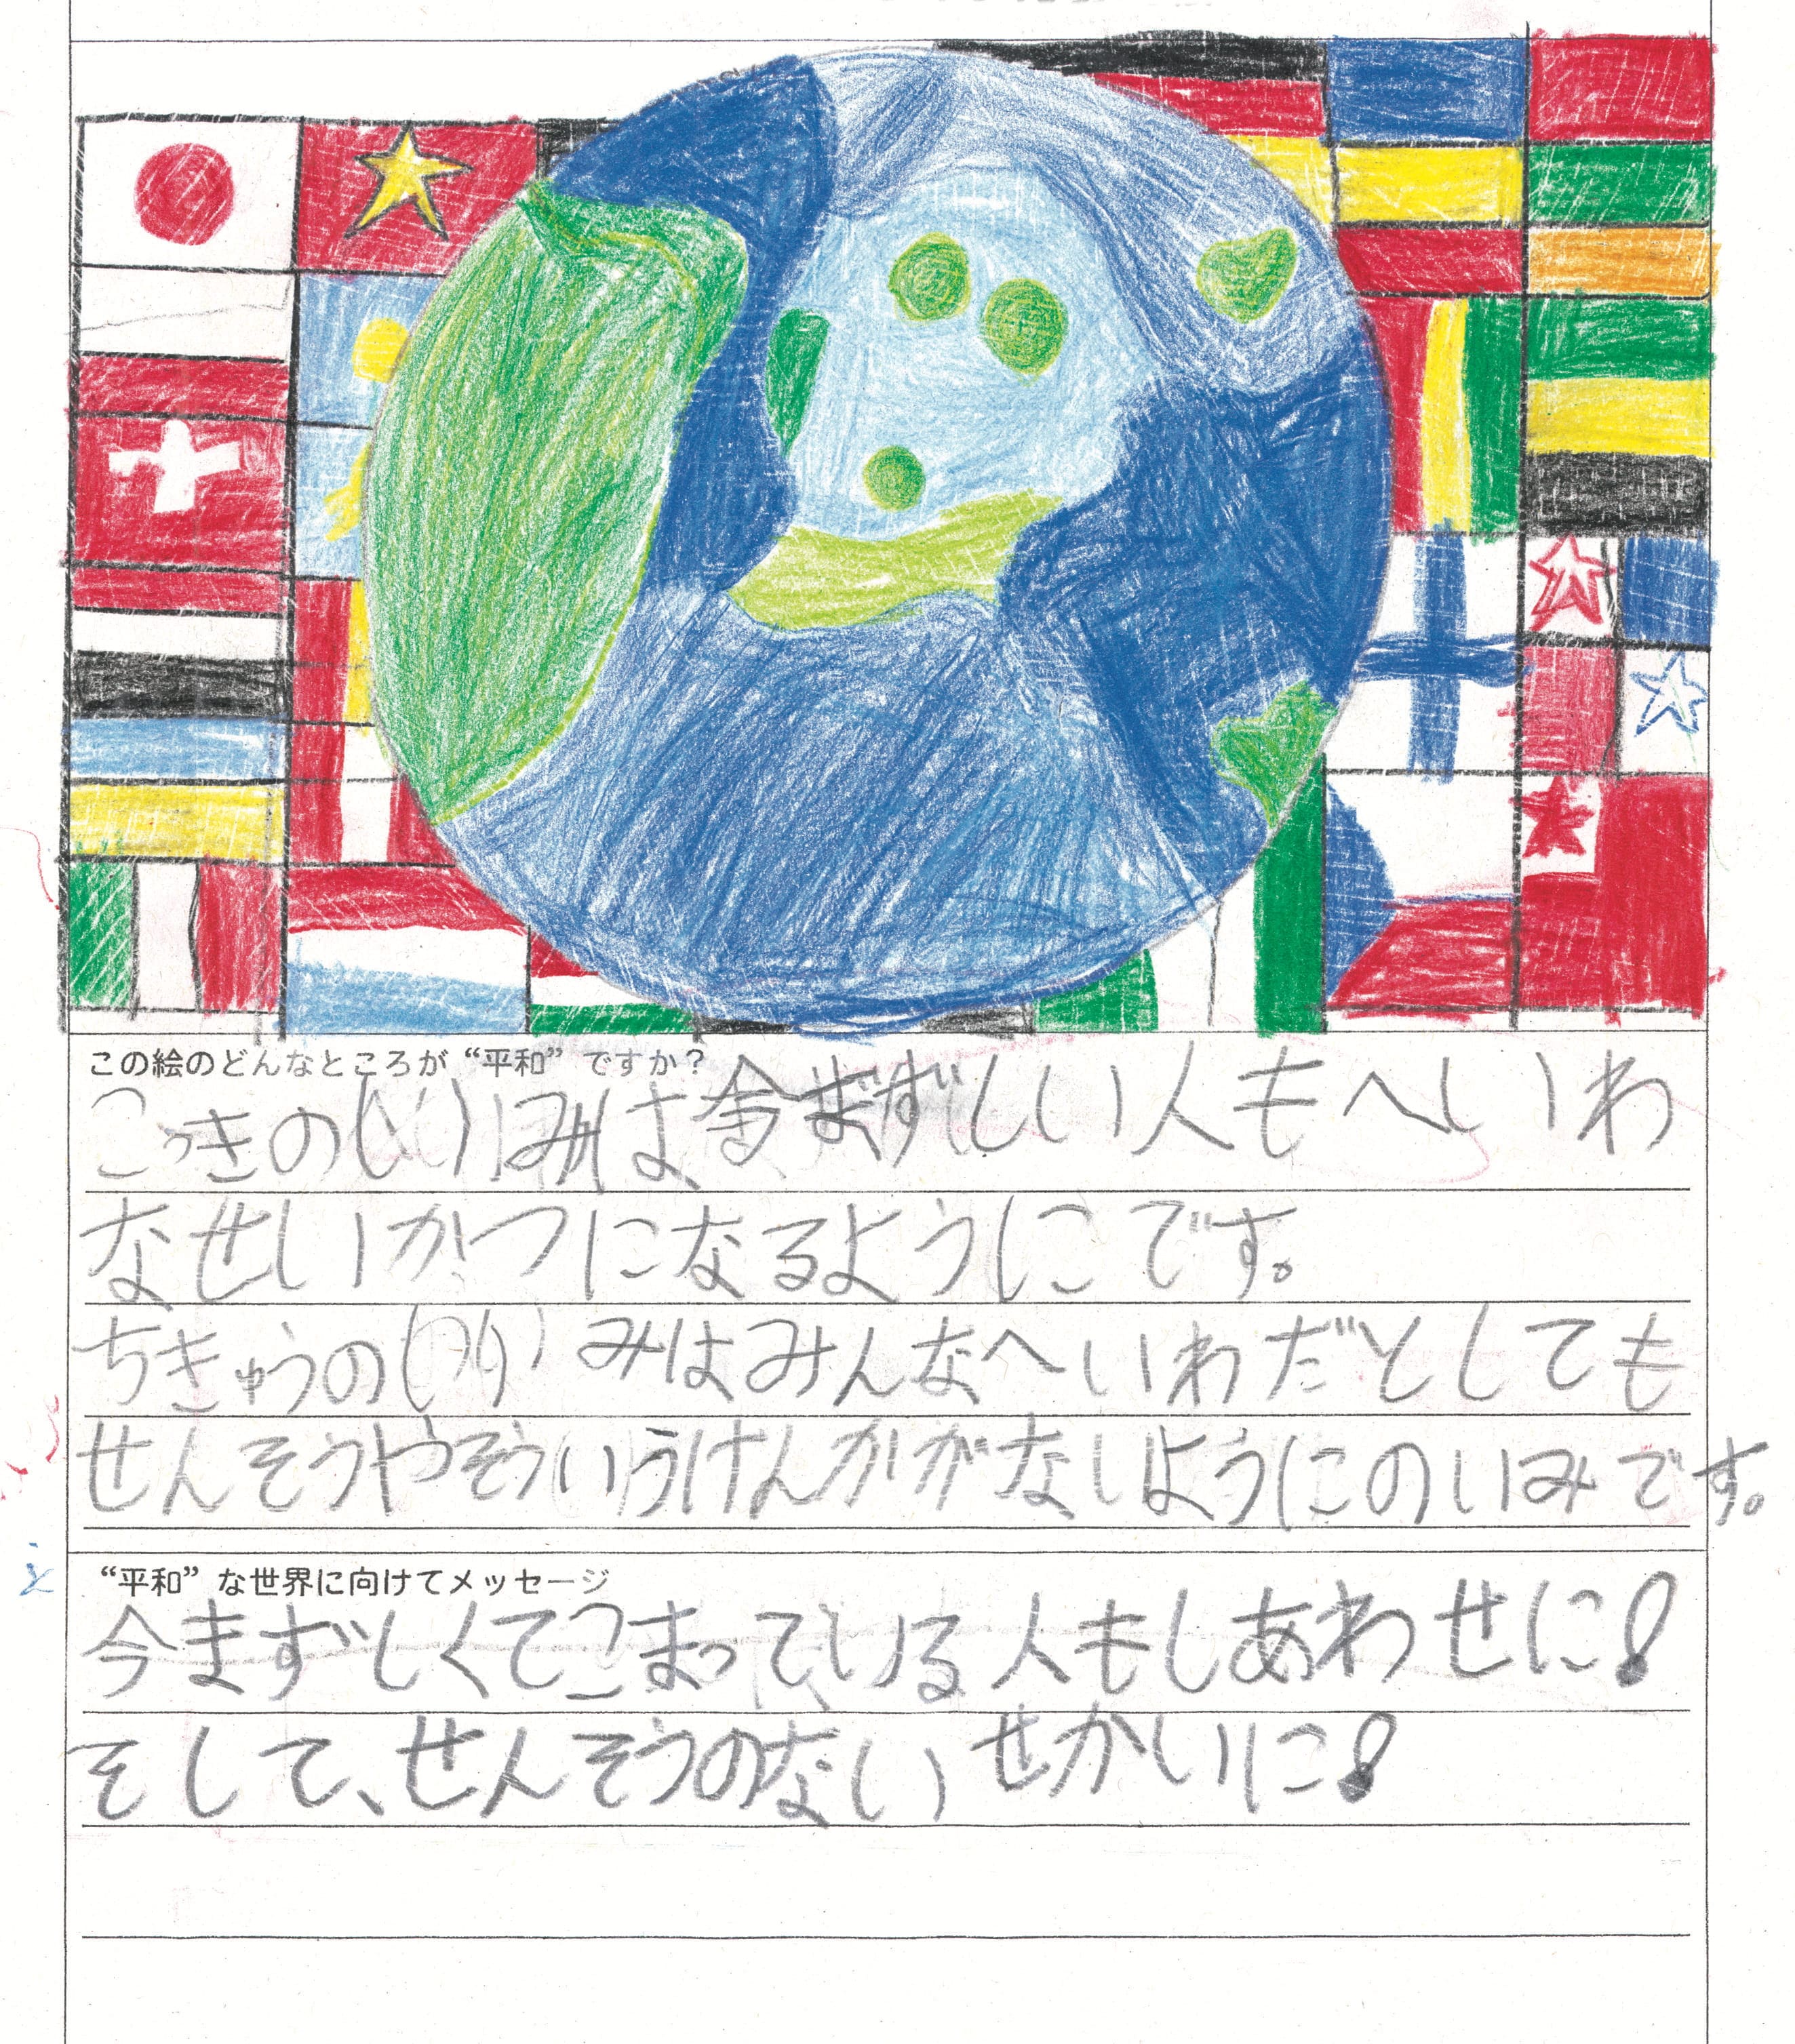 この絵のどんなところが“平和”ですか?
こっきのいみは今まずしい人もへいわ
なせいかつになるようにです。
ちきゅうのいみはみんなへいわだとしても
せんそうやそういうけんかがないようにのいみです。
“平和”な世界に向けてメッセージ
今まずしくてこまっている人もしあわせに!
そして、せんそうのないせかいに!